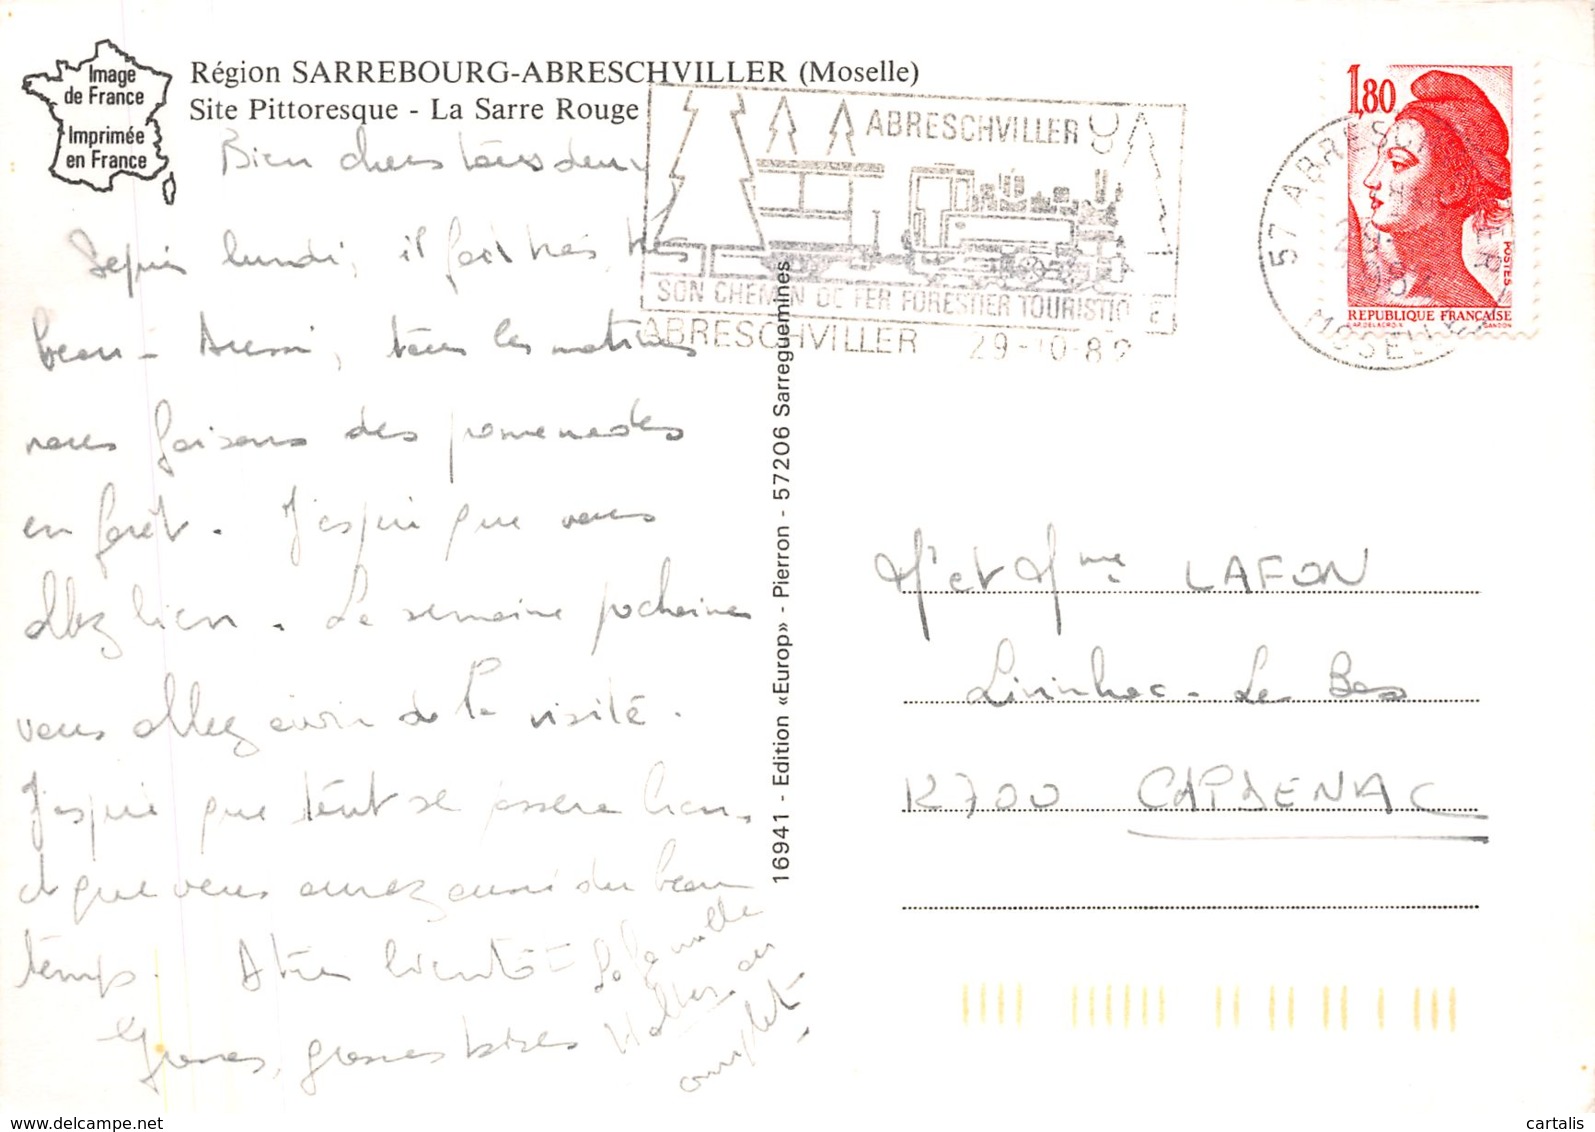 Image
de France
Imprimée
en France
Région SARREBOURG-ABRESCHVILLER (Moselle)
Site Pittoresque - La Sarre Rouge
Bien chers tous deux
Depuis lundi, il fait très, très
beau - Aussi, tous les matins
nous faisons des promenades
en forêt. J'espère que vous
allez bien. La semaine prochaine
vous allez avoir de la visite.
J'espère que tout se passera bien,
et que vous aurez aussi du beau
temps. A très bientôt -
Grosses, grosses bises
La famille
au
complet.
ABRESCHVILLER
SON CHEMIN DE FER FORESTIER TOURISTIQUE
ABRESCHVILLER 29-10-82
57 ABRESCHVILLER
MOSELLE
1,80
POSTES
REPUBLIQUE FRANÇAISE
D'AP. DELACROIX GANDON
16941 - Edition «Europ» - Pierron - 57206 Sarreguemines
Mr et Mme LAFON
Livinhac-Le Bas
12700 CAPDENAC
delcampe.net
cartalis